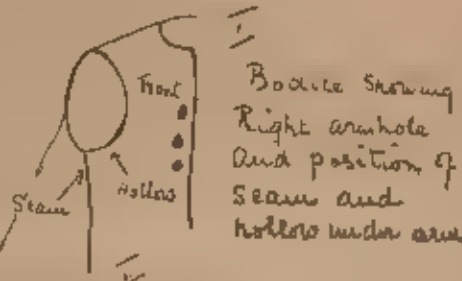 Front
Seam
Hollow
Bodice Showing
Right armhole
And position of
Seam and
hollow under arm